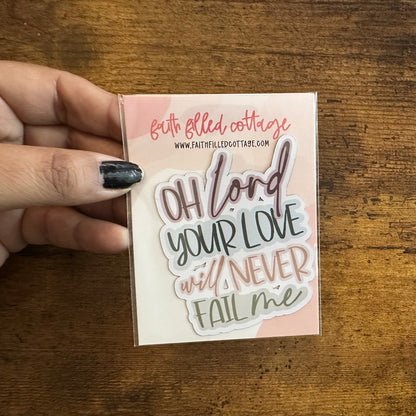 faith filled cottage
WWW.FAITHFILLEDCOTTAGE.COM
OH Lord
YOUR LOVE
will NEVER
FAIL me